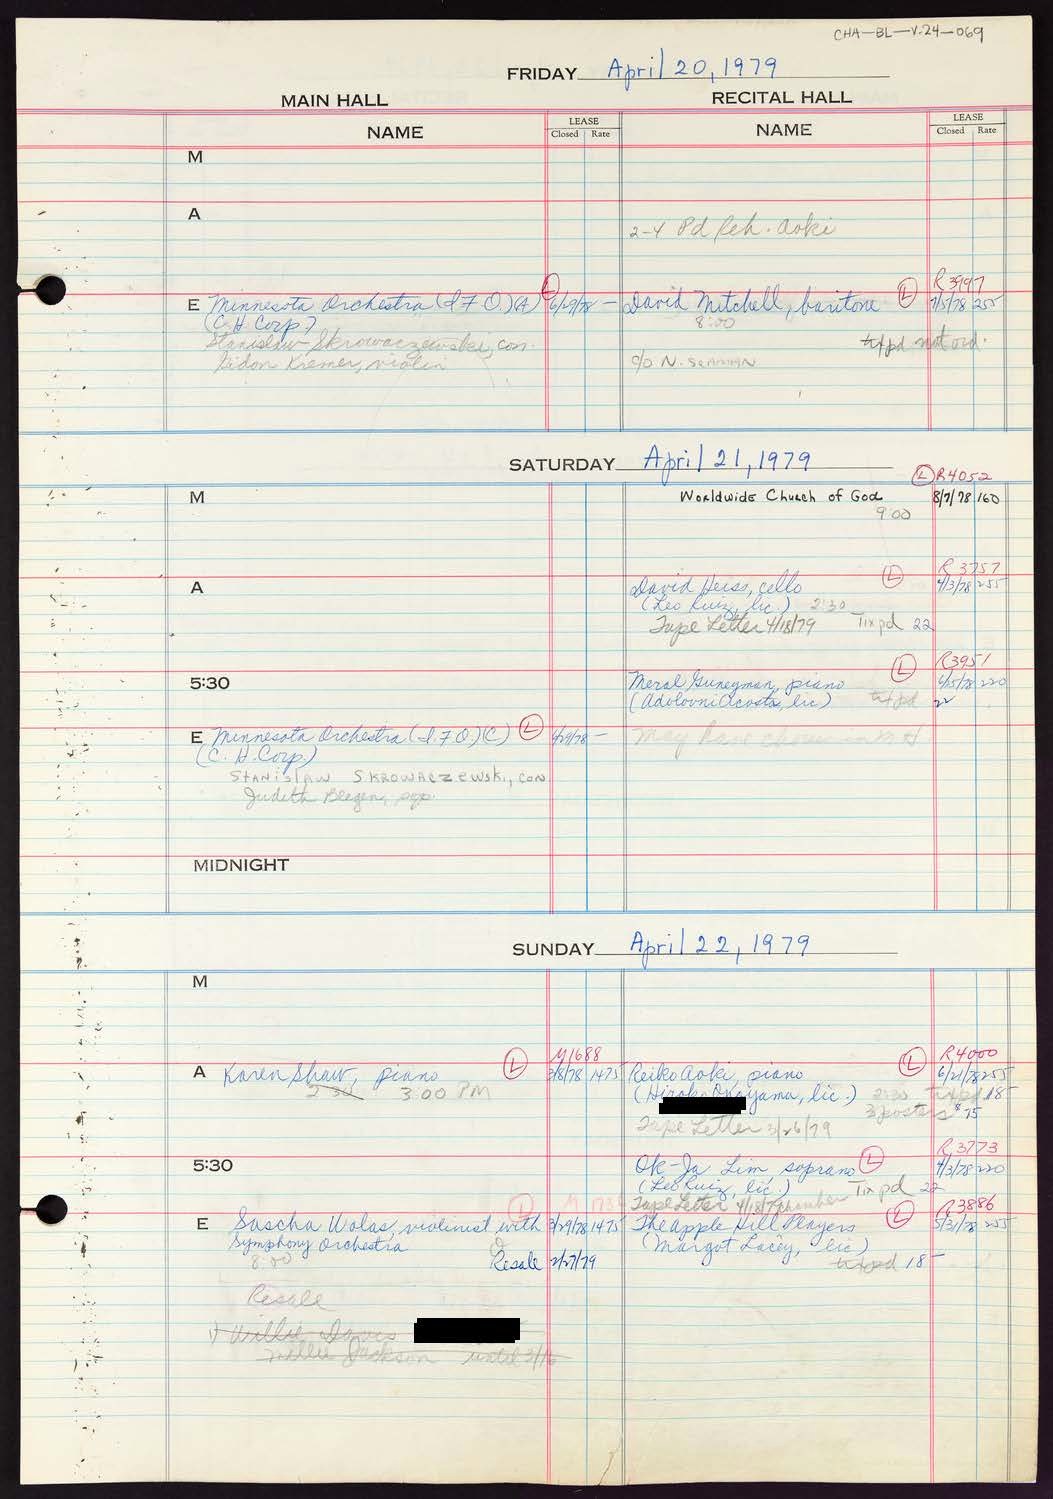 CHA-BL-V.24-069
FRIDAY April 20, 1979
MAIN HALL
RECITAL HALL
NAME
LEASE
Closed Rate
NAME
LEASE
Closed Rate
M
A
2-4 Pd Reh. Aoki
R 3997
E Minnesota Orchestra (I.F.O.)(A) L 6/29/78 —
David Mitchell, baritone L 7/5/78 255
(C.H. Corp)
8:00
Stanislaw Skrowaczewski, con.
tix pd not ord.
Gidon Kremer, violin
c/o N. SEAMAN
SATURDAY April 21, 1979
L R4052
M
Worldwide Church of God 8/7/78 160
9:00
R 3757
A
David Heiss, cello L 4/3/78 255
(Leo Ruiz, lic.) 2:30
Tape Letter 4/18/79 Tix pd 22
R3951
5:30
Meral Guneyman, piano L 6/15/78 220
tix pd 22
E Minnesota Orchestra (I.F.O.)(C) L 6/29/78 —
May have chorus in M H
(C. H. Corp.)
STANISLAW SKROWACZEWSKI, CON.
Judith Blegen, sop.
MIDNIGHT
SUNDAY April 22, 1979
M
M1688
R4000
A Karen Shaw, piano L 3/8/78 1475
Reiko Aoki, piano L 6/21/78 255
2:30 3:00 PM
(Hiroko Okayama, lic.) 2:30 tix pd 18-
3 posters $15
Tape Letter 3/26/79
R 3773
5:30
Ok-Ja Lim, soprano L 4/3/78 220
(Leo Ruiz, lic.) Tix pd 22
Tape Letter 4/18/79 chamber
R3886
L
E Sascha Wolas, violinist with 3/29/78 1475
The Apple Hill Players L 5/31/78 255
Symphony Orchestra
(Margot Lacey, lic)
8:00
Resale 2/27/79
tix pd 18-
Resale
Willie Davis
Millie Jackson until 3/16